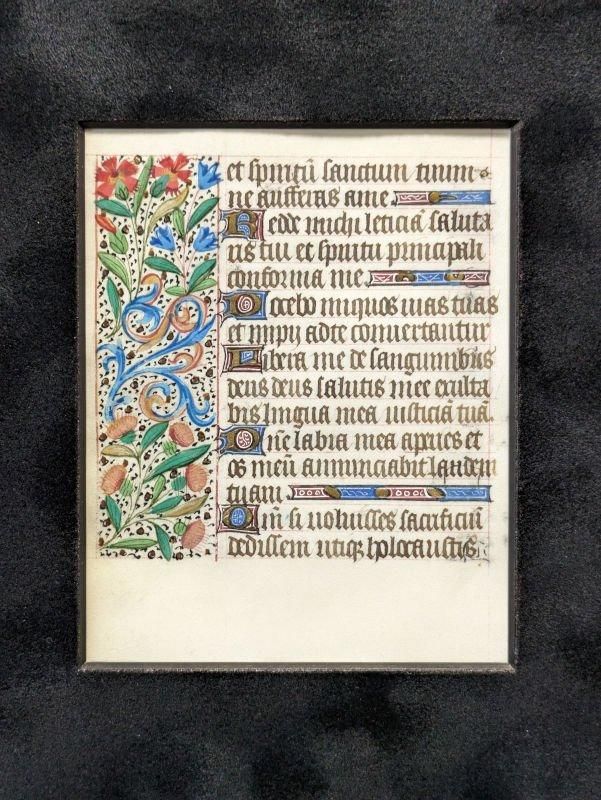 et spiritū sanctum tuum
ne aufferas a me.
Redde michi leticiā saluta
ris tui et spiritu principali
confirma me.
Docebo iniquos uias tuas
et impij ad te conuertantur
Libera me de sanguinibus
deus deus salutis mee exulta
bit lingua mea iusticiā tuā.
Dn̄e labia mea aperies et
os meū annunciabit laudem
tuam.
Qm̄ si uoluisses sacrificiū
dedissem utiqꝫ holocaustis